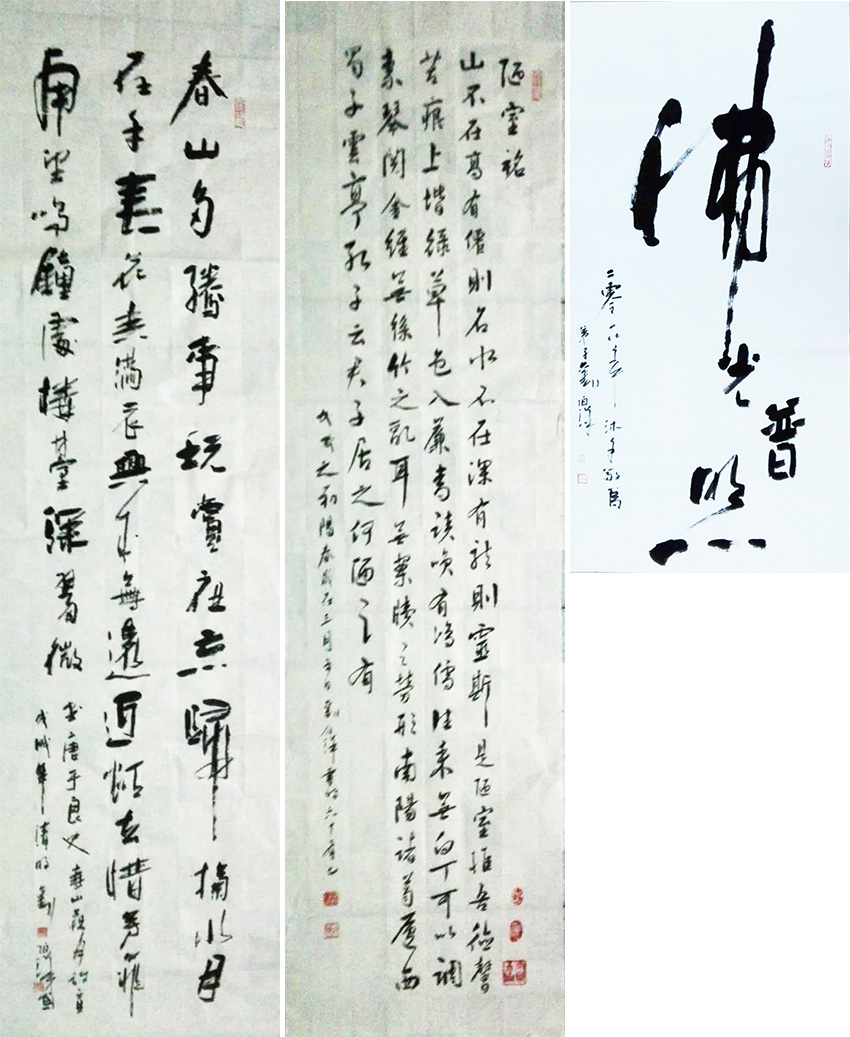 春山多勝事玩賞夜忘歸掬水月
在手弄花香滿衣興來無遠近欲去惜芳菲
南望鳴鐘處樓臺深翠微
書唐于良史春山夜月詩
戊戌年清明劉
陋室銘
山不在高有僊則名水不在深有龍則靈斯是陋室惟吾德馨
苔痕上堦綠草色入簾青談笑有鴻儒往来無白丁可以調
素琴閱金經無絲竹之亂耳無案牘之勞形南陽諸葛廬西
蜀子雲亭孔子云君子居之何陋之有
戊戌之初陽春歲在三月
佛光普照
二零一八年沐手敬寫
弟子劉